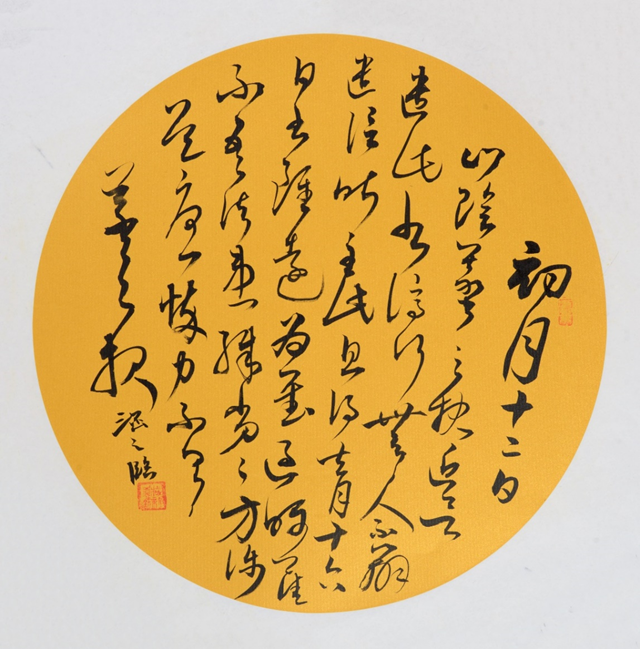 初月十二日
山陰羲之報近欲
遣此書停行無人不辦
遣信昨至此且得去月十六
日書雖遠為慰過
不吾諸患殊劣殊劣方涉
道憂悴力不具
羲之報
之臨